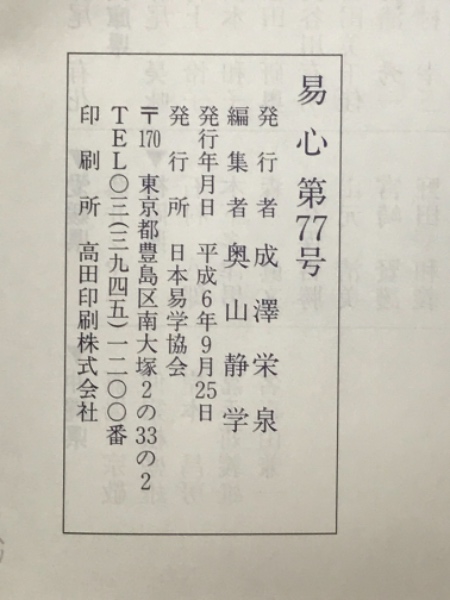 易心 第77号
発行者 成澤栄泉
編集者 奥山静学
発行年月日 平成6年9月25日
発行所 日本易学協会
〒170 東京都豊島区南大塚2の33の2
TEL〇三(三九四五)一二〇〇番
印刷所 高田印刷株式会社